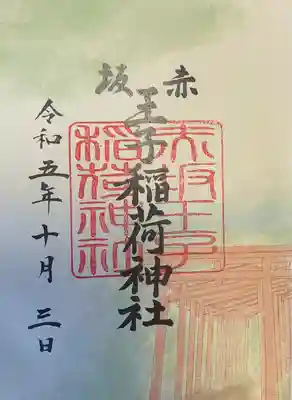 赤坂
王子稲荷神社
令和五年十月三日
赤坂王子
稲荷神社